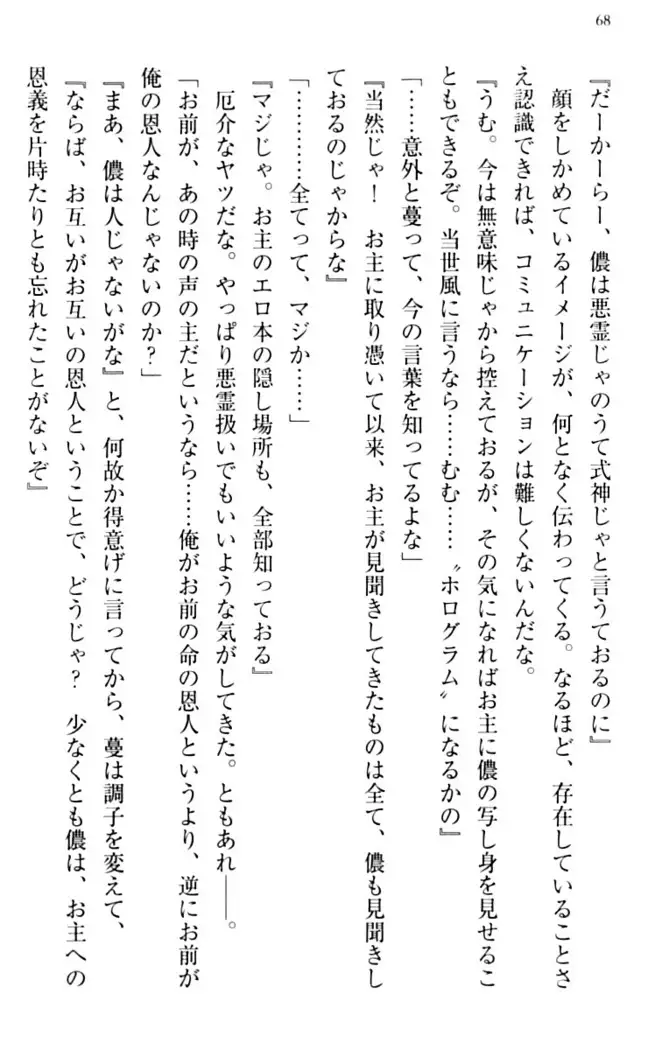 68
『だーかーらー、儂は悪霊じゃのうて式神じゃと言うておるのに』
　顔をしかめているイメージが、何となく伝わってくる。なるほど、存在していることさ
え認識できれば、コミュニケーションは難しくないんだな。
『うむ。今は無意味じゃから控えておるが、その気になればお主に儂の写し身を見せるこ
ともできるぞ。当世風に言うなら……むむ……〝ホログラム〟になるかの』
「……意外と蔓って、今の言葉を知ってるよな」
『当然じゃ！　お主に取り憑いて以来、お主が見聞きしてきたものは全て、儂も見聞きし
ておるのじゃからな』
「…………全てって、マジか……」
『マジじゃ。お主のエロ本の隠し場所も、全部知っておる』
　厄介なヤツだな。やっぱり悪霊扱いでもいいような気がしてきた。ともあれ――。
「お前が、あの時の声の主だというなら……俺がお前の命の恩人というより、逆にお前が
俺の恩人なんじゃないのか？」
『まあ、儂は人じゃないがな』と、何故か得意げに言ってから、蔓は調子を変えて、
『ならば、お互いがお互いの恩人ということで、どうじゃ？　少なくとも儂は、お主への
恩義を片時たりとも忘れたことがないぞ』